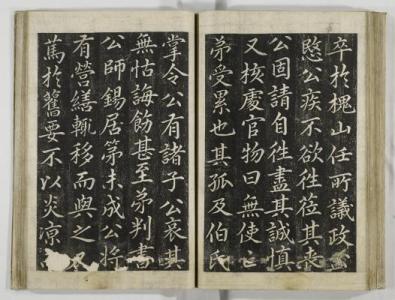 卒於槐山任所議政
愍公疾不欲往莅其喪
公固請自往盡其誠慎
又核處官物曰無使亡
弟受累也其孤及伯氏
掌令公有諸子公哀其
無怙誨飭甚至弟判書
公師錫居第未成公將
有營繕輒移而與之
篤於舊要不以炎凉